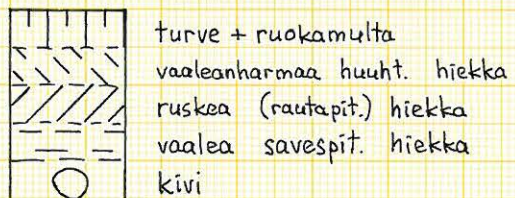 turve + ruokamulta
vaaleanharmaa huuht. hiekka
ruskea (rautapit.) hiekka
vaalea savespit. hiekka
kivi